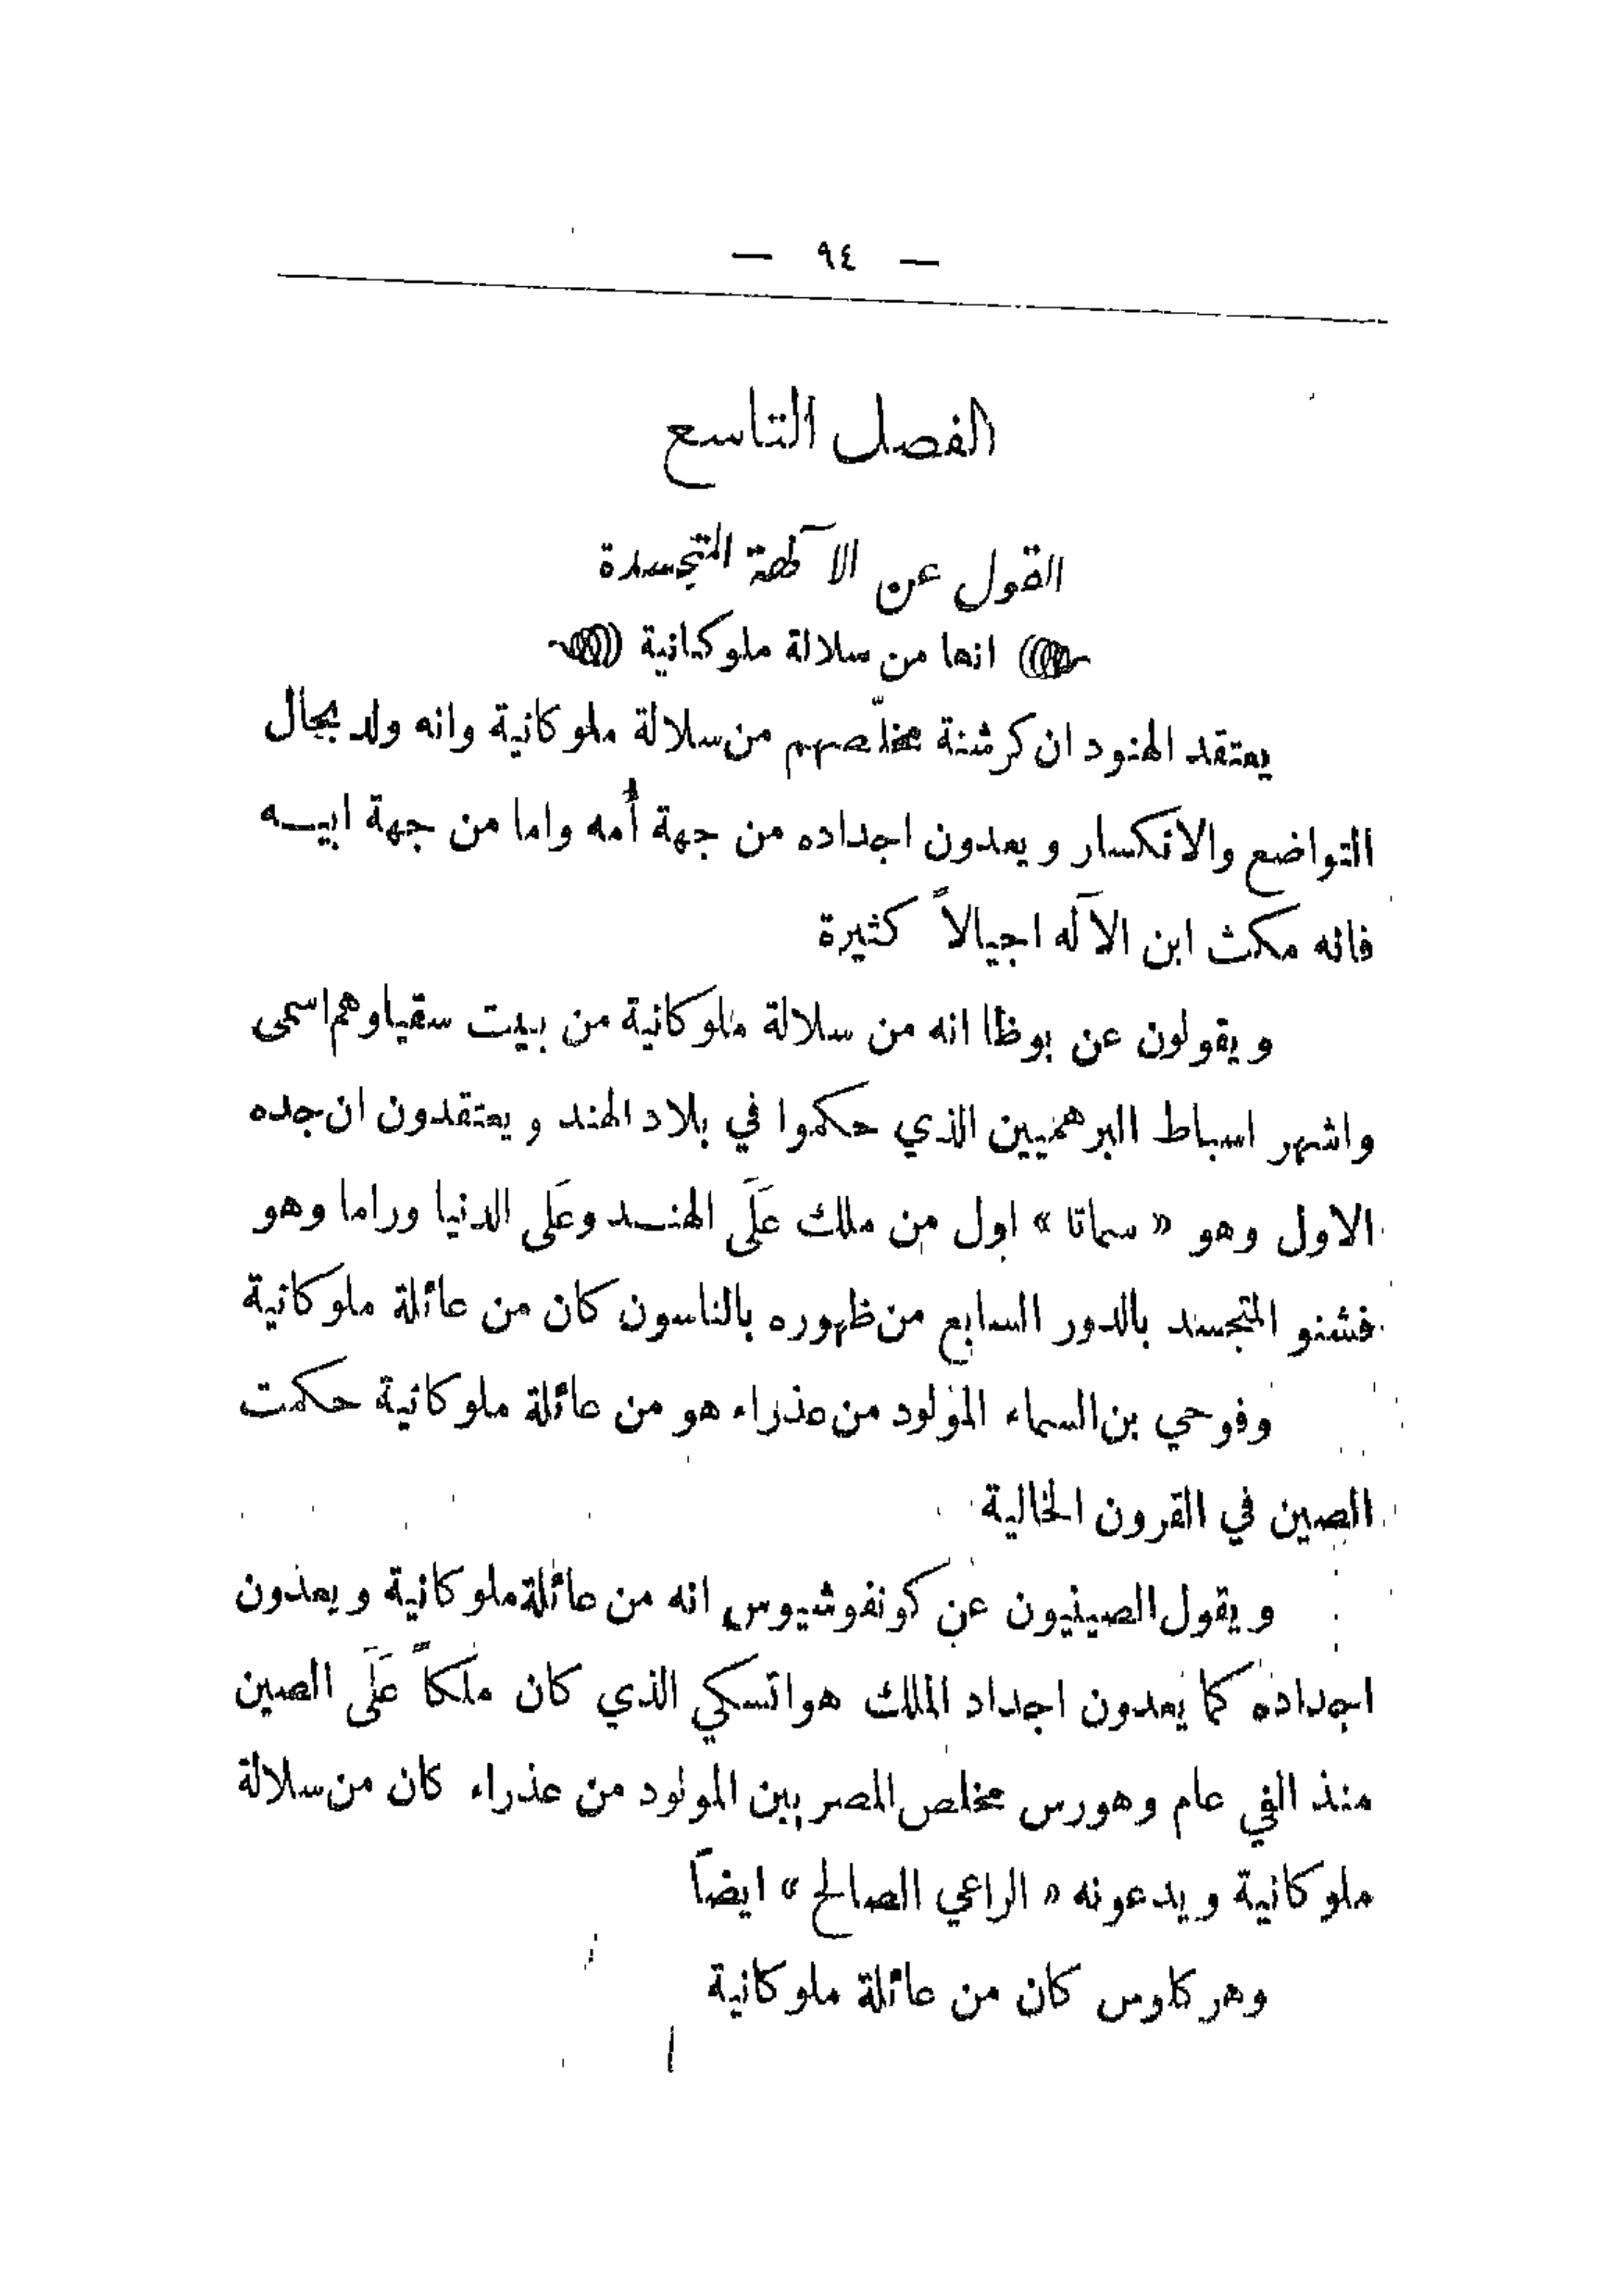 — ٩٤ —
الفصل التاسع
القول عن الآلهة المتجسدة
انها من سلالة ملوكانية
يعتقد الهنود ان كرشنة مخلّصهم من سلالة ملوكانية وانه ولد بحال
التواضع والانكسار ويعدون اجداده من جهة أمه واما من جهة ابيه
فانه مكث ابن الآله اجيالاً كثيرة
ويقولون عن بوظا انه من سلالة ملوكانية من بيت سقيا وهم اسمى
واشهر اسباط البرهميين الذي حكموا في بلاد الهند ويعتقدون ان جده
الاول وهو « سماتا » اول من ملك عَلَى الهند وعَلى الدنيا وراما وهو
فشنو المتجسد بالدور السابع من ظهوره بالناسون كان من عائلة ملوكانية
وفوحي بن السماء المولود من عذراء هو من عائلة ملوكانية حكمت
الصين في القرون الخالية
ويقول الصينيون عن كونفوشيوس انه من عائلة ملوكانية ويعدون
اجداده كما يعدون اجداد الملك هواتسكي الذي كان ملكاً عَلَى الصين
منذ الفي عام وهورس مخلص المصريين المولود من عذراء كان من سلالة
ملوكانية ويدعونه « الراعي الصالح » ايضاً
وهركلوس كان من عائلة ملوكانية